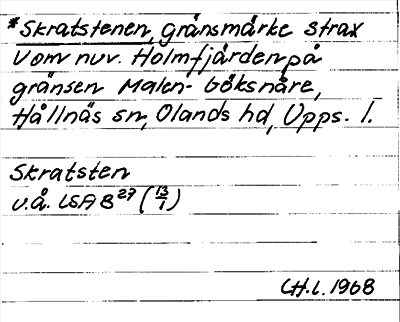 *Skratstenen, gränsmärke strax
V om nuv. Holmfjärden på
gränsen Malen- Böksnåre,
Hållnäs sn, Olands hd, Upps. l.
Skratsten
u.å. LSA B27 (13/1)
CH.l. 1968